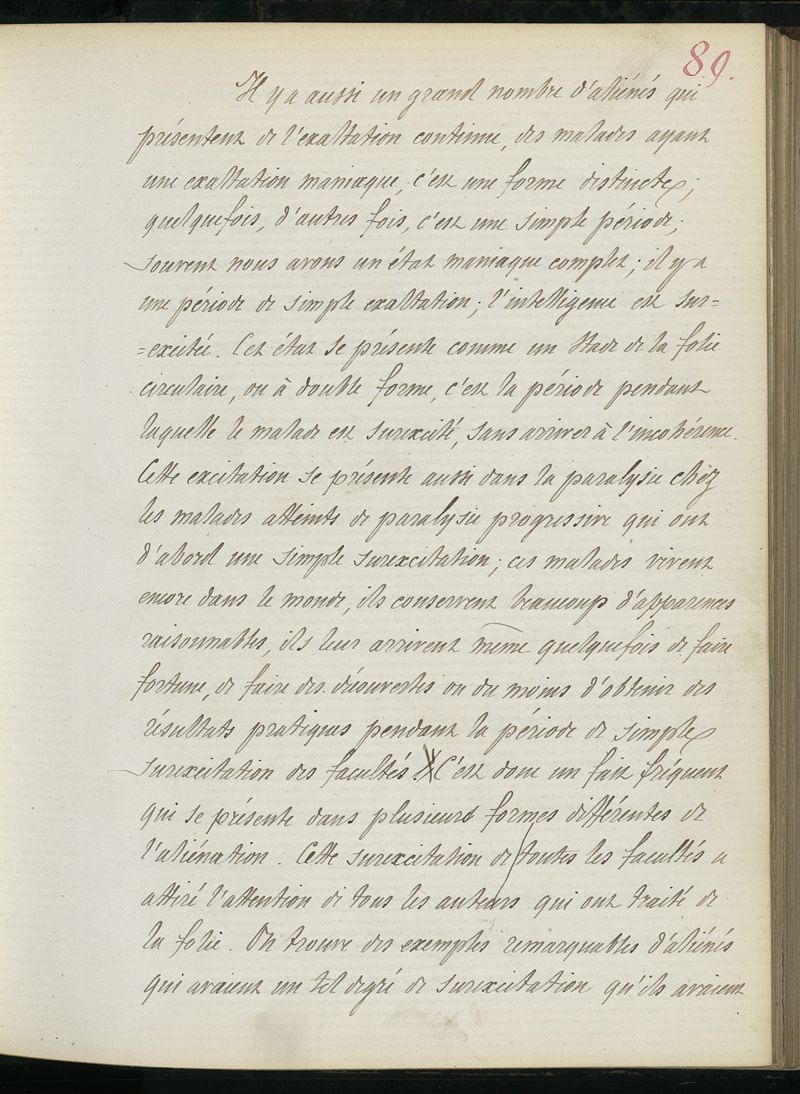 89.
Il y a aussi un grand nombre d'aliénés qui
présentent de l'exaltation continue, des malades ayant
une exaltation maniaque, c'est une forme distincte;
quelquefois, d'autres fois, c'est une simple période;
souvent nous avons un état maniaque complet; il y a
une période de simple exaltation; l'intelligence est sur=
=excitée. Cet état se présente comme un stade de la folie
circulaire, ou à double forme, c'est la période pendant
laquelle le malade est surexcité, sans arriver à l'incohérence.
Cette excitation se présente aussi dans la paralysie chez
les malades atteints de paralysie progressive qui ont
d'abord une simple surexcitation; ces malades vivent
encore dans le monde, ils conservent beaucoup d'apparences
raisonnables, ils leur arrivent même quelquefois de faire
fortune, de faire des découvertes ou du moins d'obtenir des
résultats pratiques pendant la période de simple
surexcitation des facultés. C'est donc un fait fréquent
qui se présente dans plusieurs formes différentes de
l'aliénation. Cette surexcitation de toutes les facultés a
attiré l'attention de tous les auteurs qui ont traité de
la folie. On trouve des exemples remarquables d'aliénés
qui avaient un tel degré de surexcitation qu'ils avaient